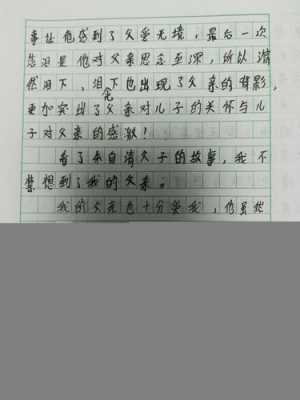 事让他感到了父爱无境，最后一次
落泪是他对父亲思念至深，所以潸
然泪下，泪下也出现了父亲的背影，
更加突出了父亲对儿子的关怀与儿
子对父亲的感激！
看了朱自清父子的故事，我不
禁想到了我的父亲。
我的父亲也十分爱我，他虽然